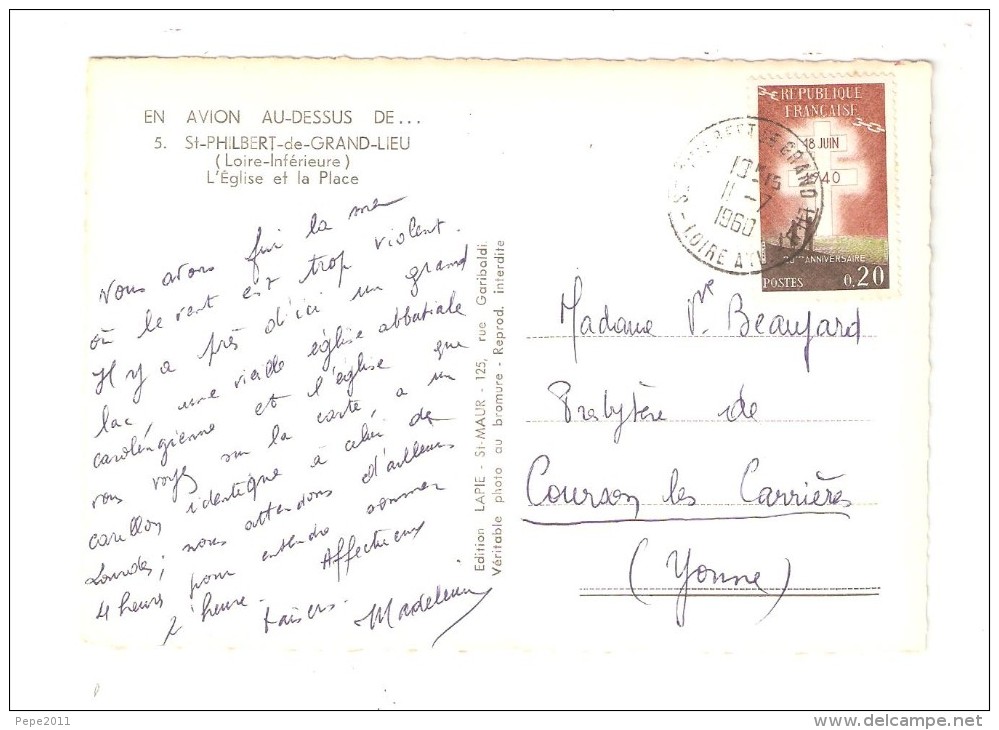 EN AVION AU-DESSUS DE...
5. St-PHILBERT-de-GRAND-LIEU
(Loire-Inférieure)
L'Église et la Place
Nous avons fui la mer
où le vent est trop violent.
Il y a près d'ici un grand
lac, une vieille église abbatiale
carolingienne et l'église que
vous voyez sur la carte, a un
carillon identique à celui de
Lourdes ; nous attendons d'ailleurs
4 heures pour entendre sonner
l'heure. Affectueux
baisers. Madeleine
Edition LAPIE - St-MAUR - 125, rue Garibaldi
Véritable photo au bromure - Reprod. interdite
REPUBLIQUE
FRANÇAISE
18 JUIN
1940
20ème ANNIVERSAIRE
POSTES 0,20
GRAND LIEU
11 -7
1960
LOIRE
Madame Vve Beaujard
Presbytère de
Courson les Carrières
(Yonne)
Pepe2011
www.delcampe.net